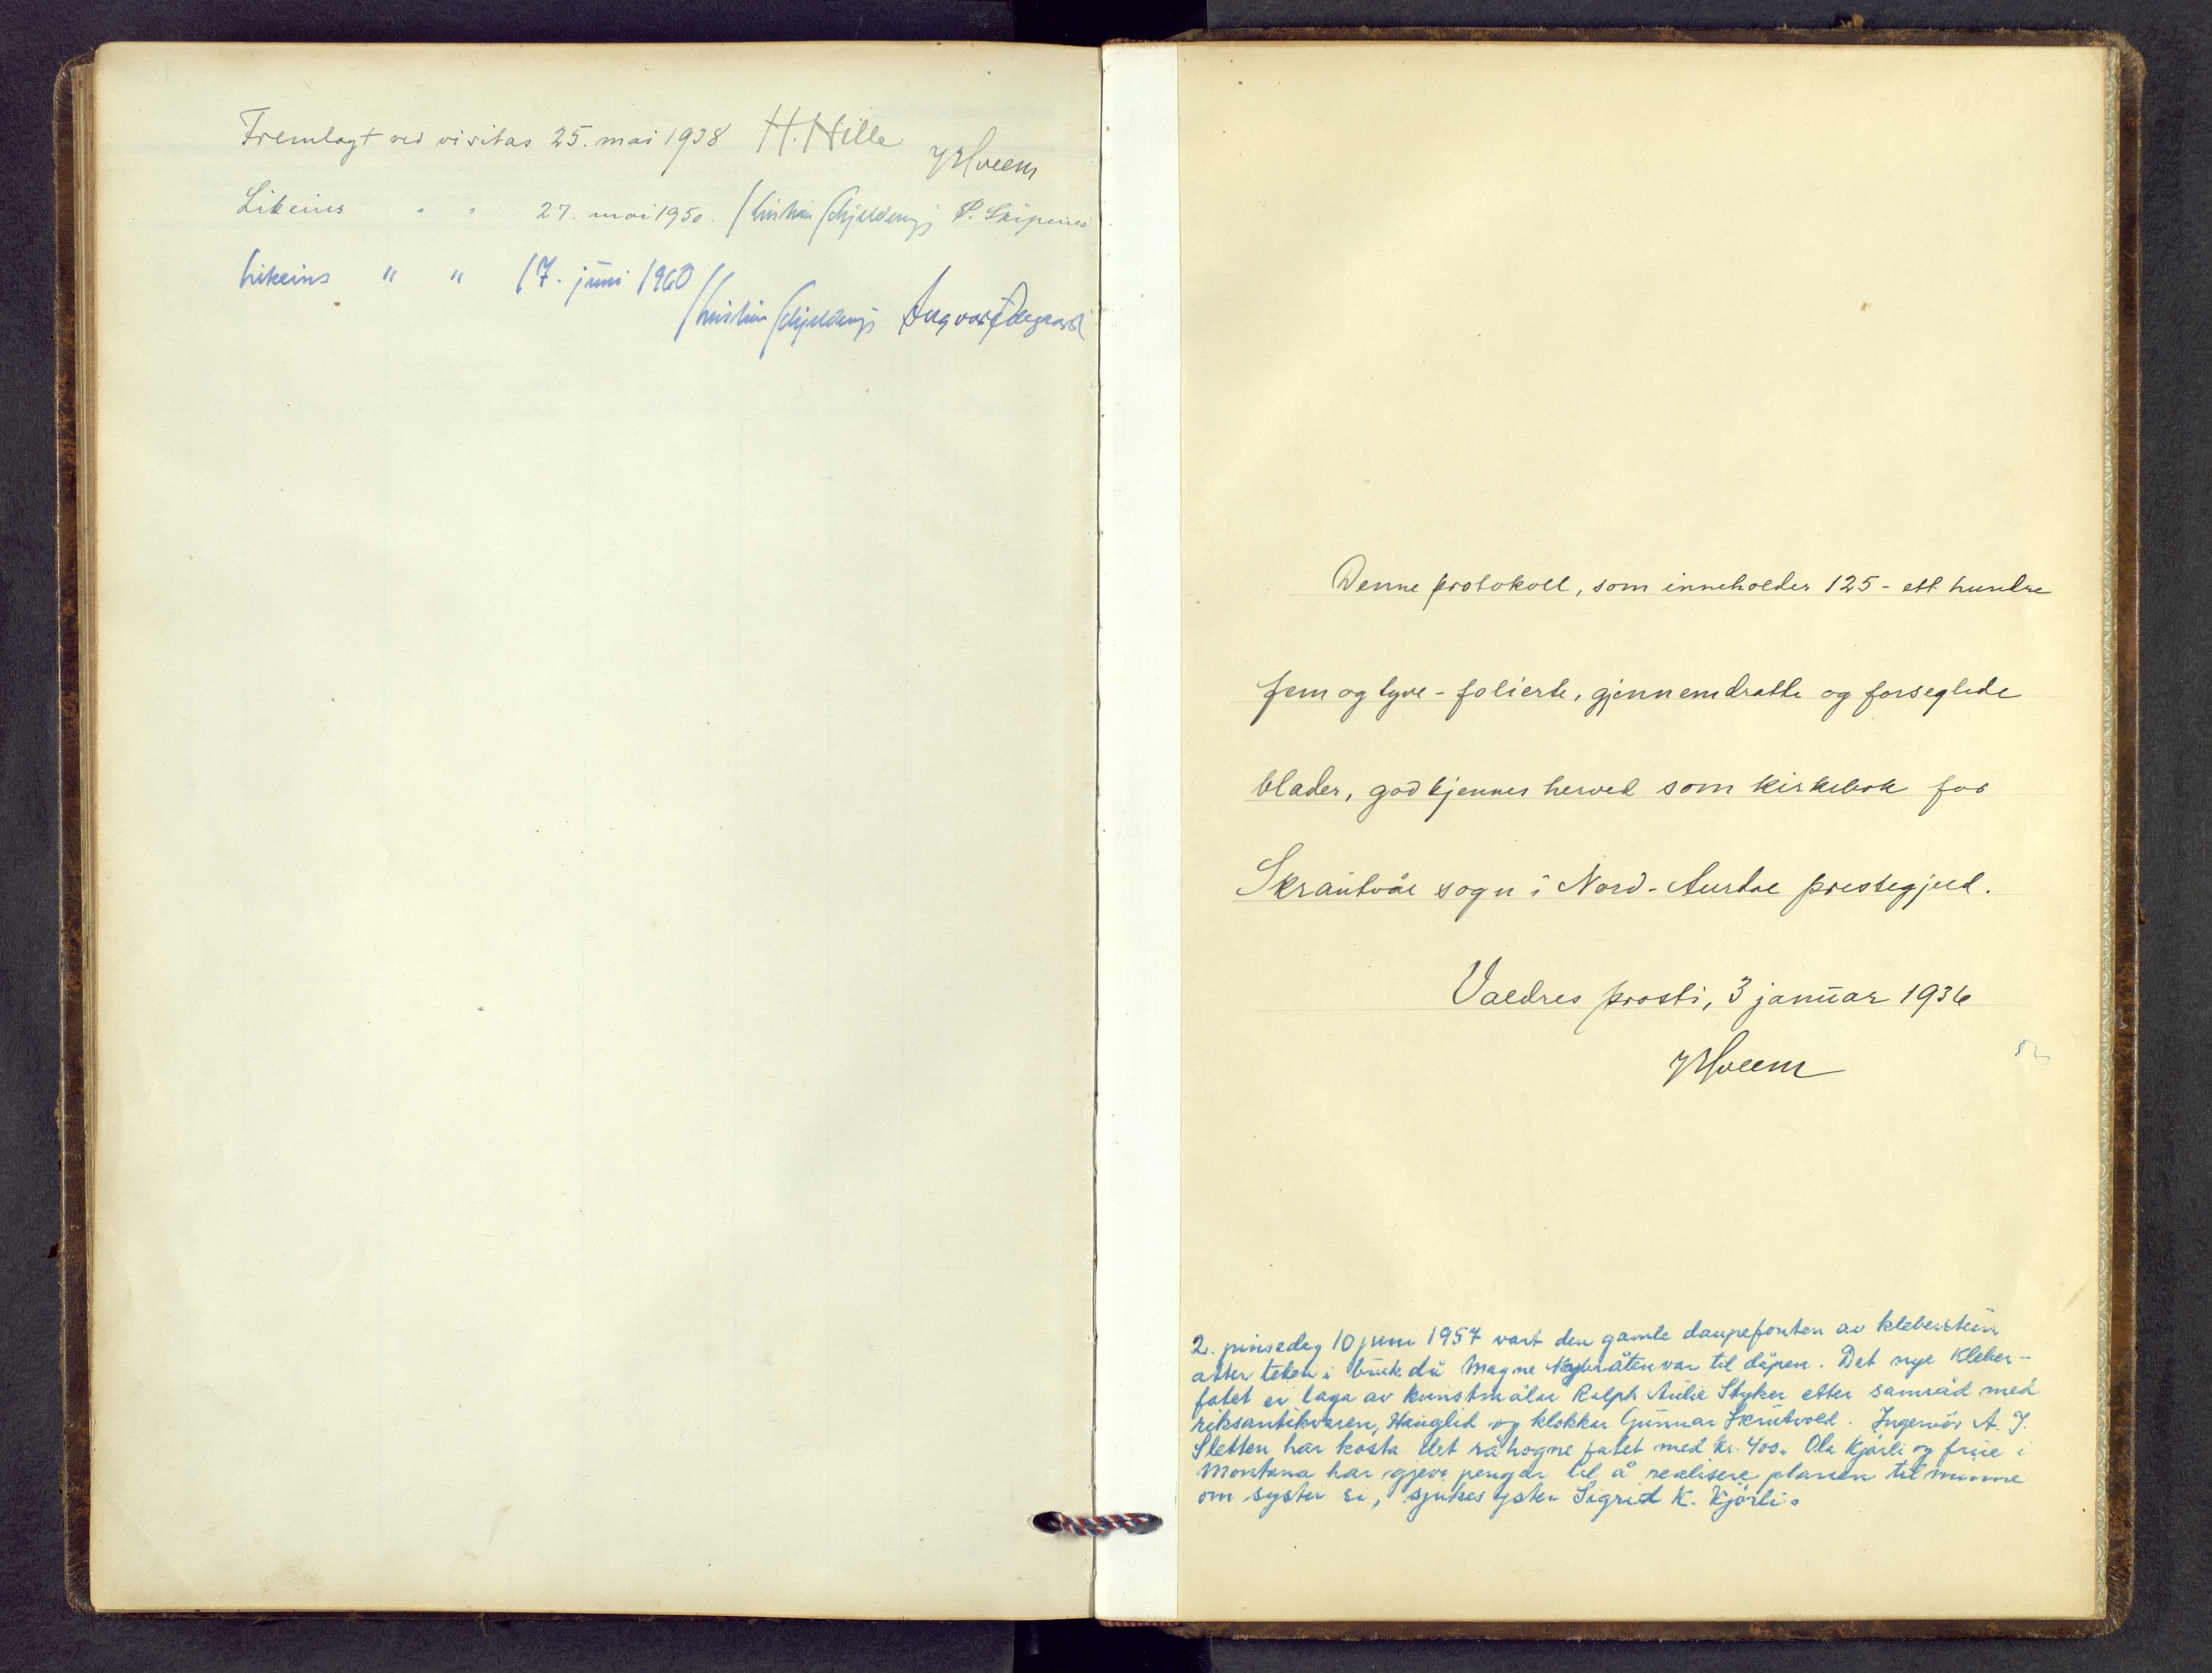 Fremlagt ved visitas 25. mai 1938 H. Hille
Hveem
Likeins " " 27. mai 1950. Kristian Schjelderup P. Skipenes
Likeins " " 17. juni 1960
Kristian Schjelderup Ingvar Ødegaard
Denne protokoll, som inneholder 125 - ett hundre
fem og tyve - folierte, gjennemdratte og forseglede
blader, godkjennes herved som kirkebok for
Skrautvål sogn i Nord-Aurdal prestegjeld.
Valdres prosti, 3 januar 1936
Hveem
2. pinsedag 10 juni 1957 vart den gamle daupefonten av kleberstein
atter teken i bruk då Magne var til dåpen. Det nye kleber-
fatet er laga av kunstmålar Ralph Aulie Styker etter samråd med
riksantikvaren, Hauglid og klokkar Gunnar Skrutvold. Ingeniör A. J.
Sletten har kosta det råhogne fatet med kr. 400. Ola Kjörli og frue i
Montana har gjeve pengar til å realisere planen til minne
om syster si, sjukesyster Sigrid K. Kjörli.